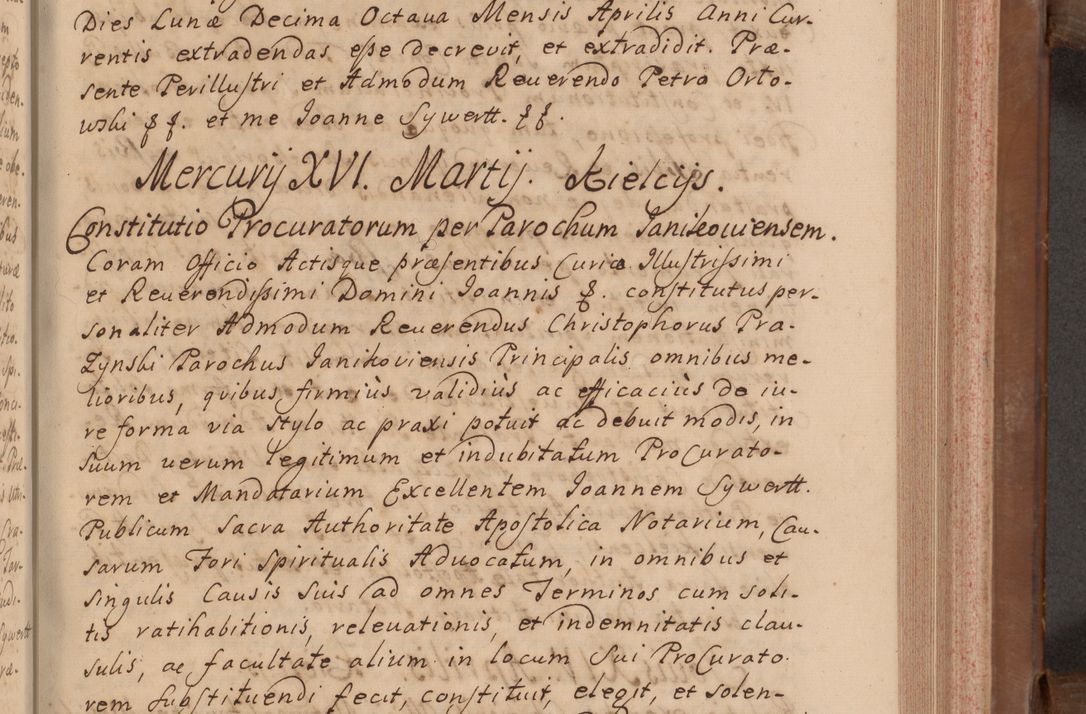 Dies Lunæ Decima Octaua Mensis Aprilis Anni Cur-
rentis extradendas esse decrevit, et extradidit. Præ-
sente Perillustri et Admodum Reuerendo Petro Orto-
wski et me Ioanne Sywertt.
Mercurij XVI. Martij. Kielcijs.
Constitutio Procuratorum per Parochum Janikouiensem.
Coram Officio Actisque præsentibus Curiæ Illustrissimi
et Reuerendissimi Domini Ioannis constitutus per-
sonaliter Admodum Reuerendus Christophorus Pra-
Zynski Parochus Janikoviensis Principalis omnibus me-
lioribus, quibus firmiùs validiùs ac efficaciùs de iu-
re forma via stylo ac praxi potuit ac debuit modis, in
suum uerum legitimum et indubitatum Procurato-
rem et Mandatarium Excellentem Ioannem Sywertt.
Publicum Sacra Authoritate Apostolica Notarium, Cau-
sarum Fori Spiritualis Aduocatum, in omnibus et
singulis Causis suis ad omnes Terminos cum soli-
tis ratihabitionis, releuationis, et indemnitatis clau-
sulis, ac facultate alium in locum sui Procurato
rem substituendi fecit, constituit, elegit, et solen-